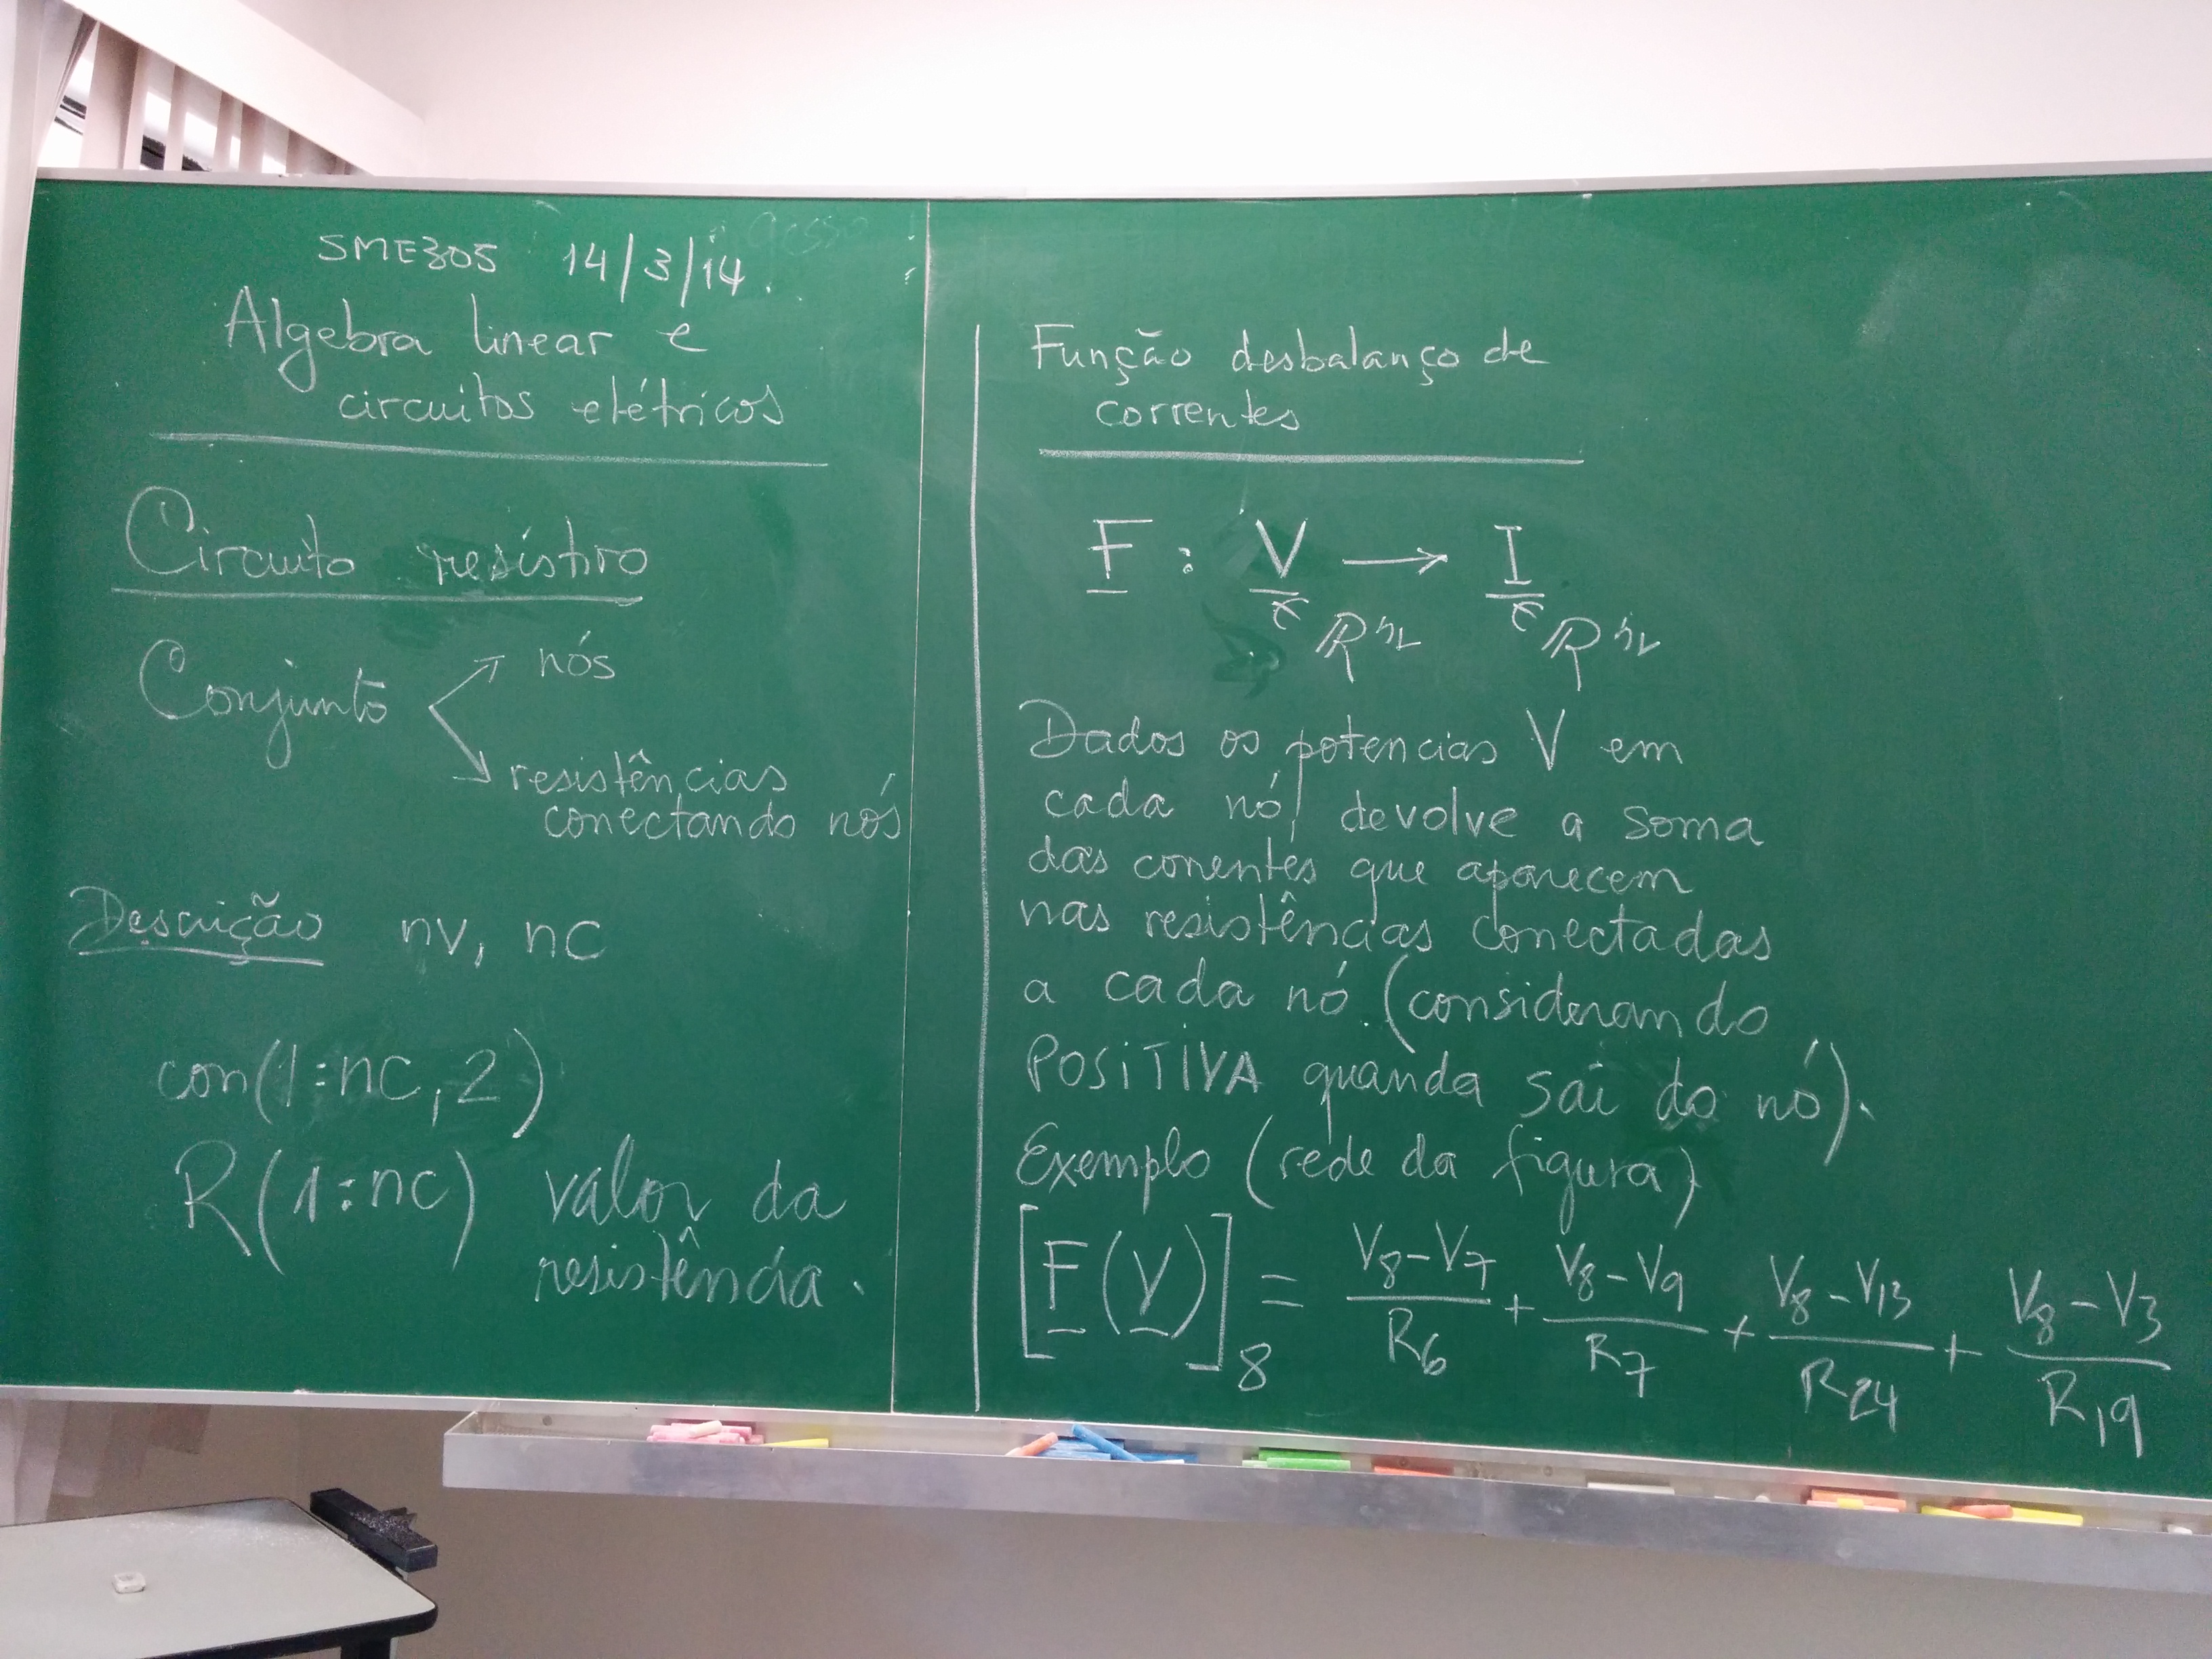 SME305 14/3/14.
Algebra linear e
circuitos elétricos
Circuito resistivo
Conjunto
nós
resistências
conectando nós
Descrição nv, nc
con(1:nc,2)
R(1:nc) valor da
resistência.
Função desbalanço de
correntes
F : V → I
∈ ℝⁿᵛ ∈ ℝⁿᵛ
Dados os potencias V em
cada nó, devolve a soma
das correntes que aparecem
nas resistências conectadas
a cada nó. (considerando
POSITIVA quando sai do nó).
Exemplo (rede da figura)
[F(V)]₈ = (V₈-V₇)/R₆ + (V₈-V₉)/R₇ + (V₈-V₁₃)/R₂₄ + (V₈-V₃)/R₁₉